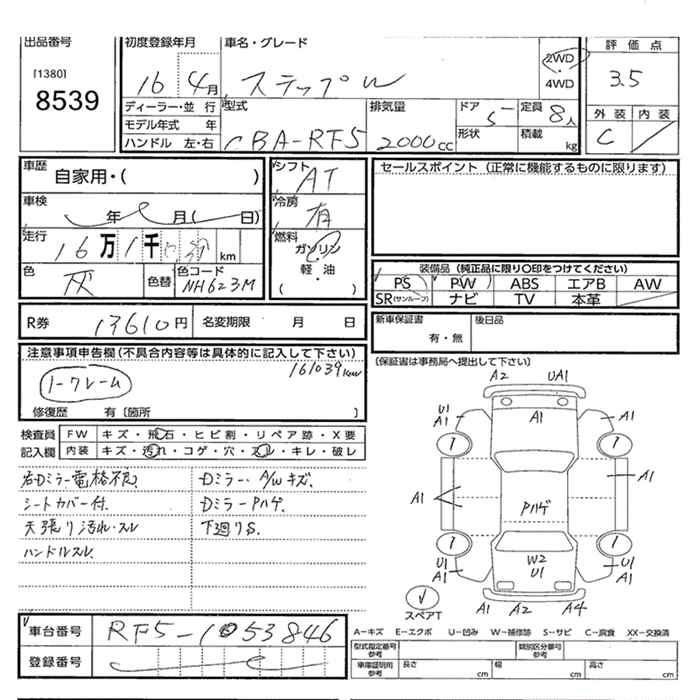 出品番号
[1380]
8539
初度登録年月
16 4月
車名・グレード
ステップW
2WD
4WD
評価点
3.5
外装 内装
C
ディーラー・並行
モデル年式 年
ハンドル 左・右
型式
CBA-RF5
排気量
2000cc
ドア
5
定員
8人
形状
積載
kg
車歴
自家用・( )
車検
年 月( 日)
走行
16万1千 km
色
灰
色替
色コード
NH623M
シフト
AT
冷房
有
燃料
ガソリン
軽・油
( )
セールスポイント (正常に機能するものに限ります)
装備品 (純正品に限り○印をつけてください)
PS PW ABS エアB AW
SR(サンルーフ) ナビ TV 本革
R券 13610円 名変期限 月 日
新車保証書
有・無
後日品
(保証書は事務局へ提出して下さい)
注意事項申告欄(不具合内容等は具体的に記入して下さい)
161039km
ノークレーム
修復歴 有〔箇所 〕
検査員 FW キズ・飛石・ヒビ割・リペア跡・X要
記入欄 内装 キズ・汚れ・コゲ・穴・スレ・キレ・破レ
右Dミラー電格不良 Dミラー・A/Wキズ.
シートカバー付. DミラーPハゲ
天張り汚れ・スレ 下廻りS.
ハンドルスレ.
A2 UA1
U1
A1
A1
A1
A1
A1
Pハゲ
W2
U1
U1
A1
U1
A1
スペアT
A1 A2 A4
車台番号 RF5-1053846
登録番号
A−キズ E−エクボ U−凹み W−補修跡 S−サビ C−腐食 XX−交換済
型式指定番号
参考
類別区分番号
参考
車庫証明用
参考
長さ cm 幅 cm 高さ cm